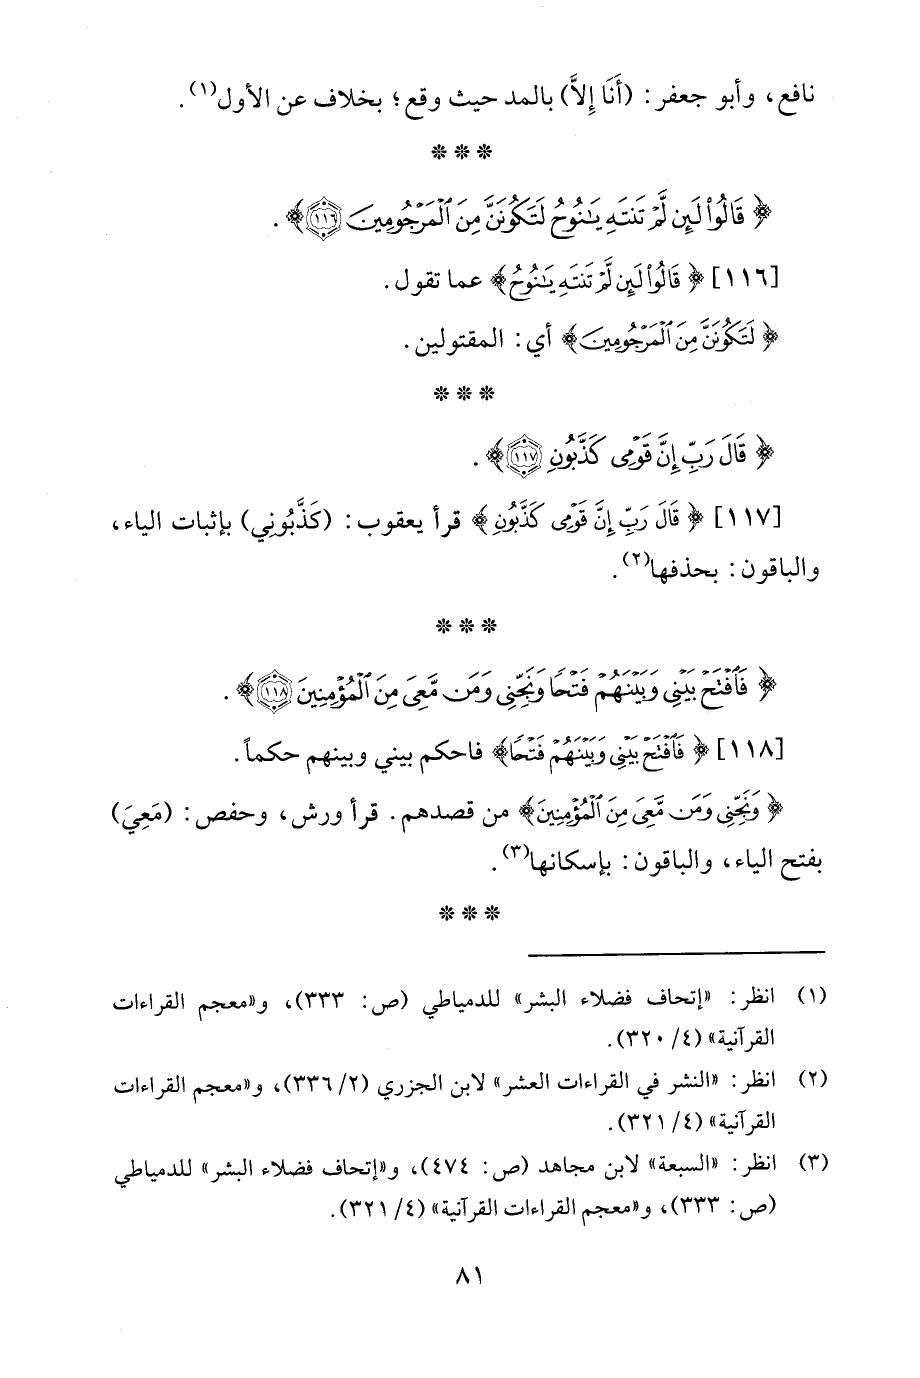 نافع، وأبو جعفر: (أَنَا إِلاَّ) بالمد حيث وقع؛ بخلاف عن الأول(١).
* * *
﴿ قَالُواْ لَئِن لَّمۡ تَنتَهِ يَٰنُوحُ لَتَكُونَنَّ مِنَ ٱلۡمَرۡجُومِينَ ١١٦﴾.
[١١٦] ﴿ قَالُواْ لَئِن لَّمۡ تَنتَهِ يَٰنُوحُ﴾ عما تقول.
﴿ لَتَكُونَنَّ مِنَ ٱلۡمَرۡجُومِينَ﴾ أي: المقتولين.
* * *
﴿ قَالَ رَبِّ إِنَّ قَوۡمِي كَذَّبُونِ ١١٧﴾.
[١١٧] ﴿ قَالَ رَبِّ إِنَّ قَوۡمِي كَذَّبُونِ﴾ قرأ يعقوب: (كَذَّبُونِي) بإثبات الياء،
والباقون: بحذفها(٢).
* * *
﴿ فَٱفۡتَحۡ بَيۡنِي وَبَيۡنَهُمۡ فَتۡحٗا وَنَجِّنِي وَمَن مَّعِيَ مِنَ ٱلۡمُؤۡمِنِينَ ١١٨﴾.
[١١٨] ﴿ فَٱفۡتَحۡ بَيۡنِي وَبَيۡنَهُمۡ فَتۡحٗا﴾ فاحكم بيني وبينهم حكماً.
﴿ وَنَجِّنِي وَمَن مَّعِيَ مِنَ ٱلۡمُؤۡمِنِينَ﴾ من قصدهم. قرأ ورش، وحفص: (مَعِيَ)
بفتح الياء، والباقون: بإسكانها(٣).
* * *
(١) انظر: «إتحاف فضلاء البشر» للدمياطي (ص: ٣٣٣)، و«معجم القراءات
القرآنية» (٤/ ٣٢٠).
(٢) انظر: «النشر في القراءات العشر» لابن الجزري (٢/ ٣٣٦)، و«معجم القراءات
القرآنية» (٤/ ٣٢١).
(٣) انظر: «السبعة» لابن مجاهد (ص: ٤٧٤)، و«إتحاف فضلاء البشر» للدمياطي
(ص: ٣٣٣)، و«معجم القراءات القرآنية» (٤/ ٣٢١).
٨١